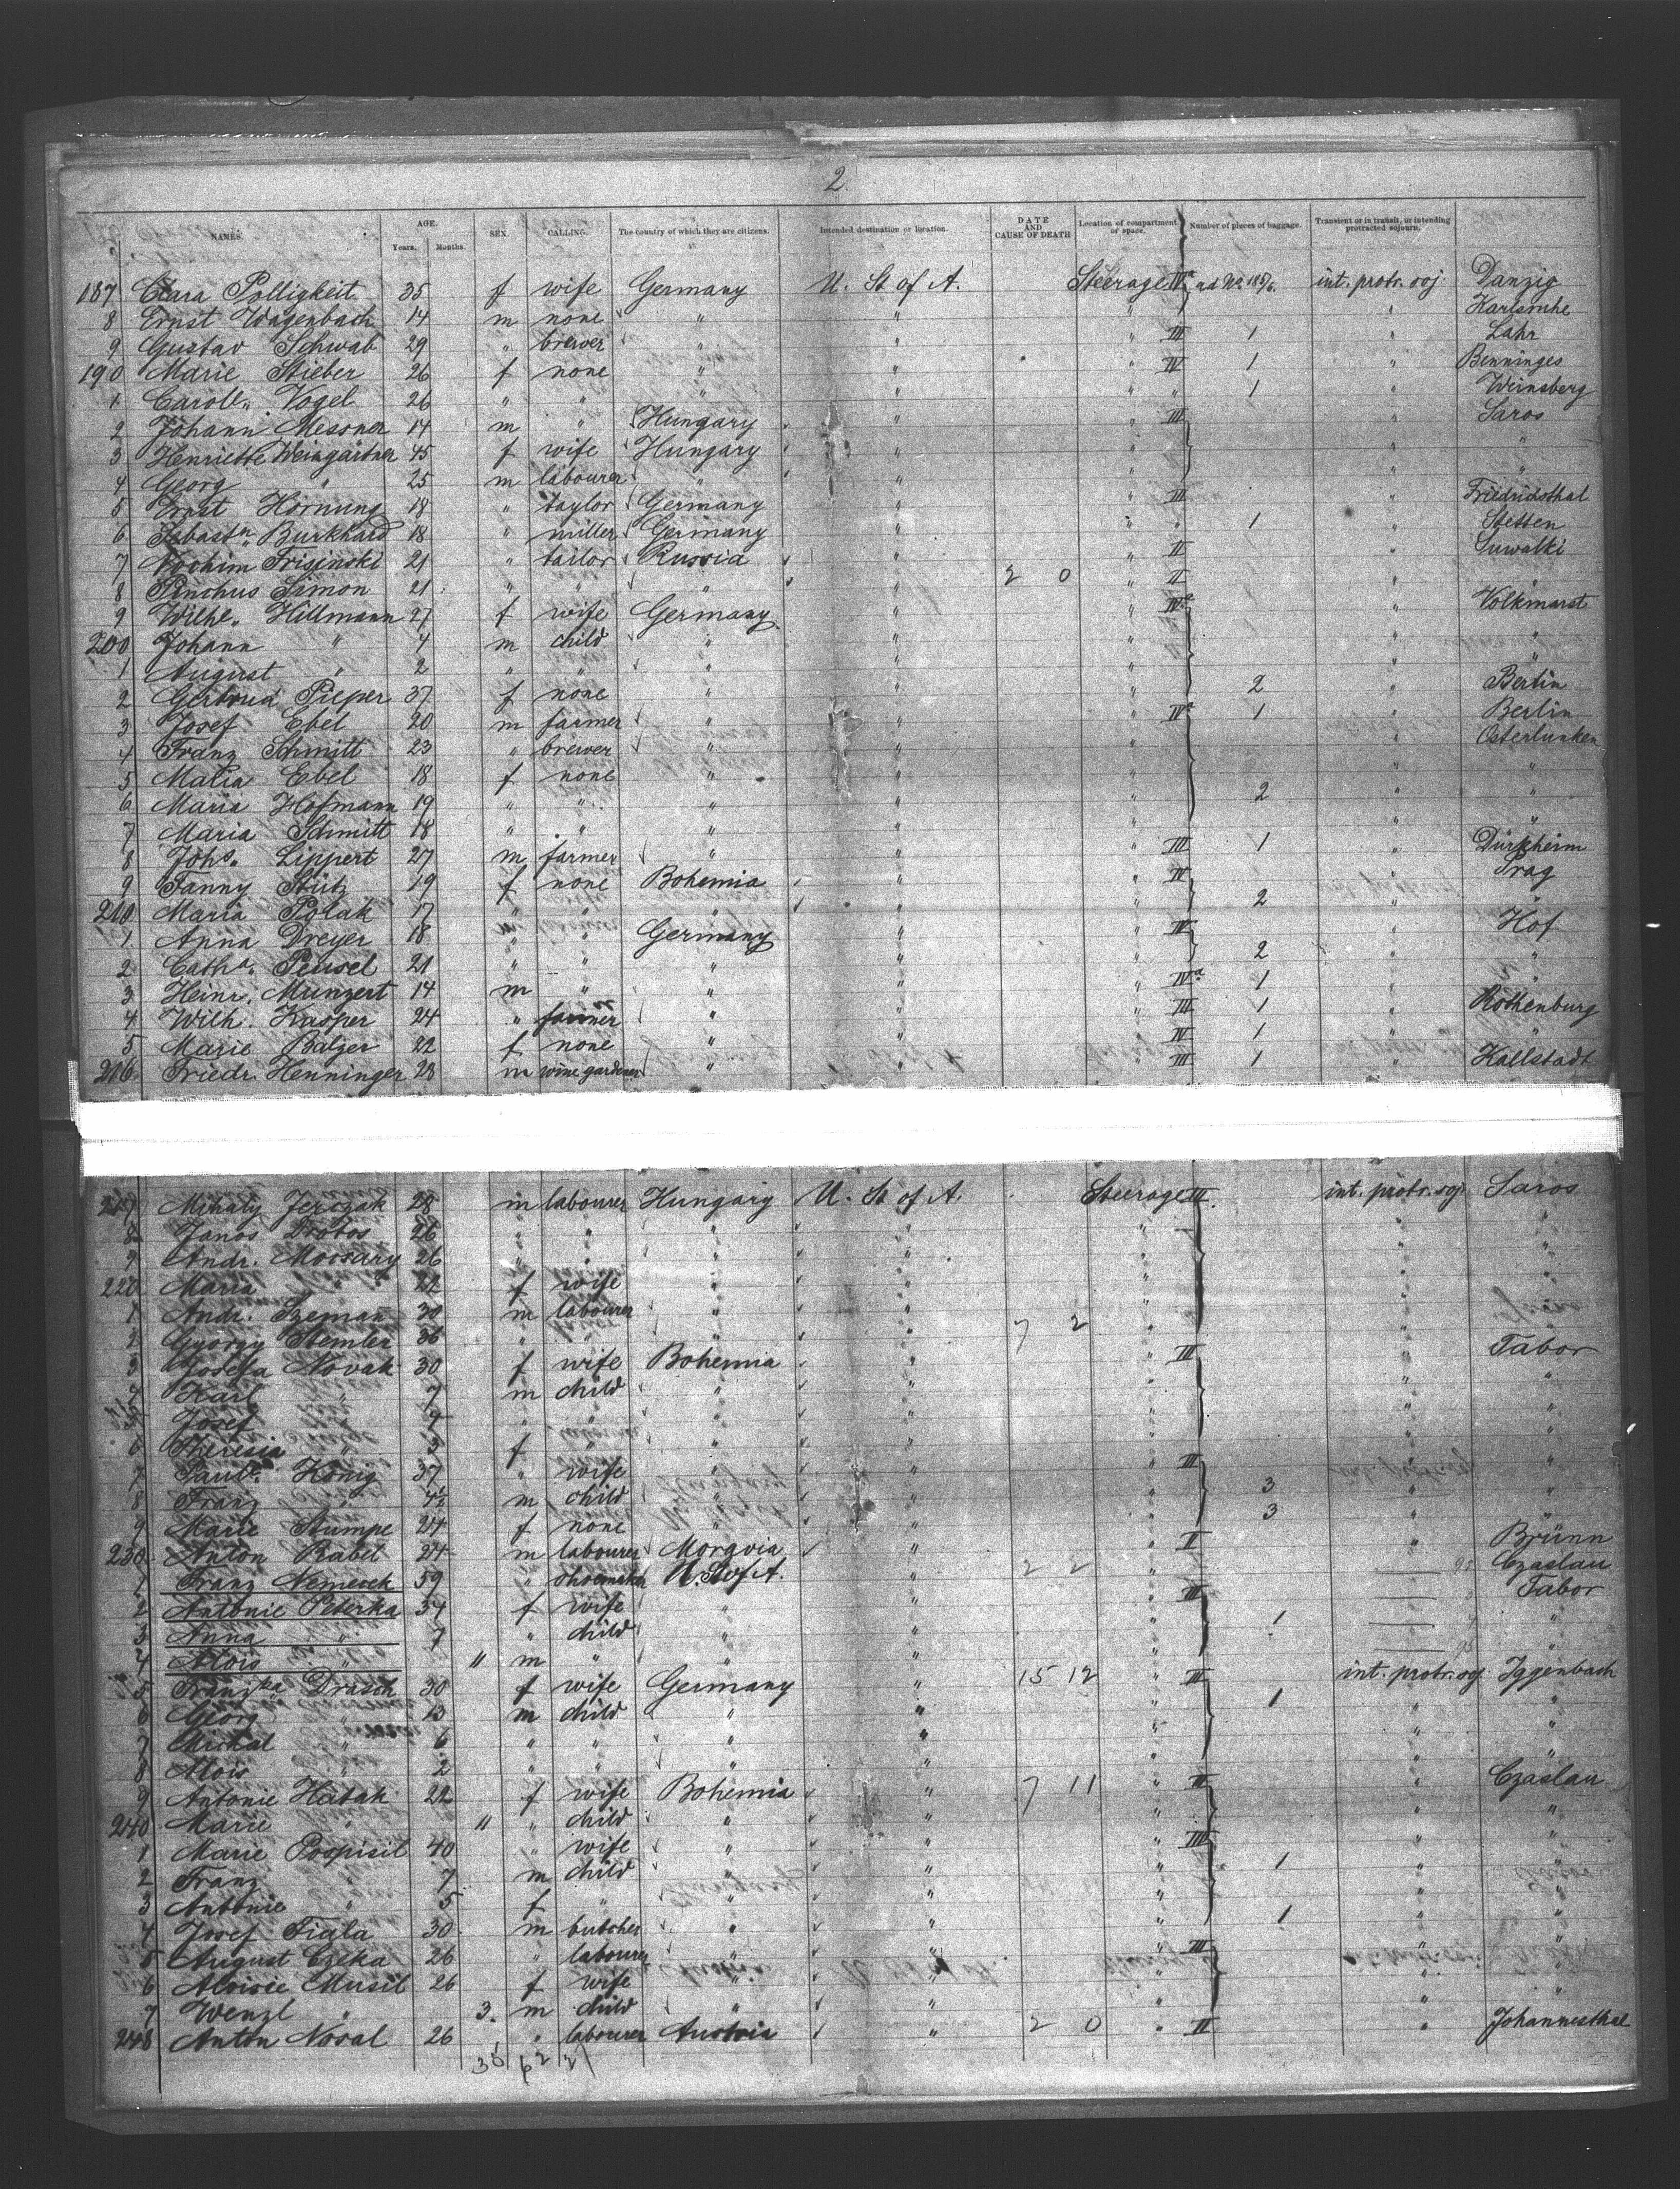 2.
NAMES. AGE. Years. Months. SEX. CALLING. The country of which they are citizens. Intended destination or location. DATE AND CAUSE OF DEATH Location of compartment or space. Number of pieces of baggage. Transient or in transit, or intending protracted sojourn.
187 Clara Polligkeit 35 f wife Germany U. St of A. Steerage IVa int. protr. soj. Danzig
8 Ernst Wagenbach 14 m none " " " " Karlsruhe
9 Gustav Schwab 29 " brewer " " " III 1 " Lahr
190 Marie Stieber 26 f none " " " IV 1 " Benninges
1 Carole. Vogel 26 " " " " " " 1 " Weinsberg
2 Johann Messner 14 m " Hungary " " III " Saros
3 Henriette Weingärtner 45 f wife Hungary " " " "
4 Georg " 25 m labourer " " " " "
5 Ernst Hornung 18 " taylor Germany " " III " Friedrichsthal
6 Sebastn. Burkhard 18 " miller Germany " " " 1 " Stetten
7 Frisinski 21 " tailor Russia " " II " Suwalki
8 Pinchus Simon 21 " " " " 2 0 " II " "
9 Wilhe. Hillmann 27 f wife Germany " " IVa " Volkmarst
200 Johann " 4 m child " " " " "
1 August " 2 " " " " " " "
2 Gertrud Pieper 37 f none " " " 2 " Berlin
3 Josef Ebel 20 m farmer " " " IVa 1 " Berlin
4 Franz Schmitt 23 " brewer " " " " Osterlunken
5 Maria Ebel 18 f none " " " " "
6 Maria Hofmann 19 " " " " " 2 " "
7 Maria Schmitt 18 " " " " " " "
8 Johs. Lippert 27 m farmer " " " III 1 " Dürkheim
9 Fanny Stütz 19 f none Bohemia " " IV " Prag
210 Maria Polak 17 " " " " " 2 " "
1 Anna Dreyer 18 " " Germany " " IV " Hof
2 Catha. Peusel 21 " " " " " 2 " "
3 Heinr. Munzert 14 m " " " " IVa 1 " "
4 Wilh. Kasper 24 " farmer " " " III 1 " Rothenburg
5 Marie Balzer 22 f none " " " IV 1 " "
216 Friedr. Henninger 28 m wine gardener " " " III 1 " Kallstadt
217 Mihaly Jerczak 28 m labourer Hungary U. St of A. Steerage II int. protr. soj. Saros
8 Janos Drotos 26 " " " " " " "
9 Andr. Mocsary 26 " " " " " " "
220 Maria " 22 f wife " " " " "
1 Andr. Szeman 30 m labourer " " " "
2 György Stemler 36 " " " " 7 2 " "
3 Josefa Novak 30 f wife Bohemia " " III " Tabor
4 Karl " 7 m child " " " " "
Josef " 4 " " " " " " "
6 Theresia " 3 f " " " " " "
7 Paule. König 37 " wife " " " III " "
8 Franz " 4½ m child " " " 3 " "
9 Marie Stumpe 24 f none " " " 3 " "
230 Anton Rabel 24 m labourer Moravia " " II " Brünn
1 Franz Nemecek 59 " shoemaker U. St of A. " 2 2 " Czaslau
2 Antonie Peterka 34 f wife " " " III Tabor
3 Anna " 7 " child " " " 1 "
4 Alois " 11 m " " " " "
5 Franzka. Drasch 30 f wife Germany " 15 12 " II int. protr. soj. Iggenbach
6 Georg " 13 m child " " " 1 " "
7 Michal " 6 " " " " " " "
8 Alois " 2 " " " " " " "
9 Antonie Hatak 22 f wife Bohemia " 7 11 " II " Czaslau
240 Marie " 11 " child " " " " "
1 Marie Pospisil 40 " wife " " " III " "
2 Franz " 7 m child " " " 1 "
3 Antonie " 5 f " " " " " "
4 Josef Fiala 30 m butcher " " " 1 " "
5 August Czeka 26 " labourer " " " III " "
6 Aloisie Musil 26 f wife " " " " "
7 Wenzl " 3 m child " " " " "
248 Anton Nosal 26 " labourer Austria " 2 0 " II " Johannesthal
35 62 21